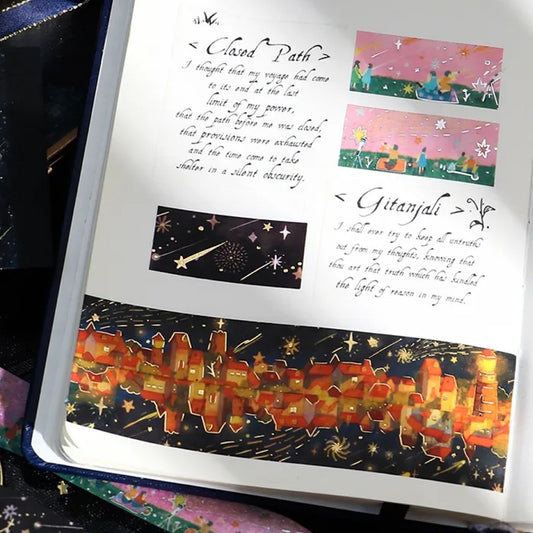 < Closed Path >
I thought that my voyage had come
to its end at the last
limit of my power,
that the path before me was closed,
that provisions were exhausted
and the time come to take
shelter in a silent obscurity.
< Gitanjali >
I shall ever try to keep all untruths
out from my thoughts, knowing that
thou art that truth which has kindled
the light of reason in my mind.